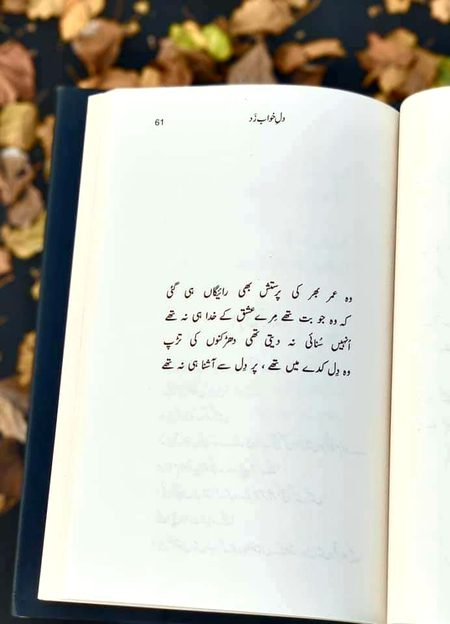 دلِ خواب زَد
61
وہ عمر بھر کی پرستش بھی رائیگاں ہی گئی
کہ وہ جو بت تھے مِرے عشق کے خدا ہی نہ تھے
اُنہیں سُنائی نہ دیتی تھی دھڑکنوں کی تڑپ
وہ دِل کدے میں تھے ، پر دِل سے آشنا ہی نہ تھے